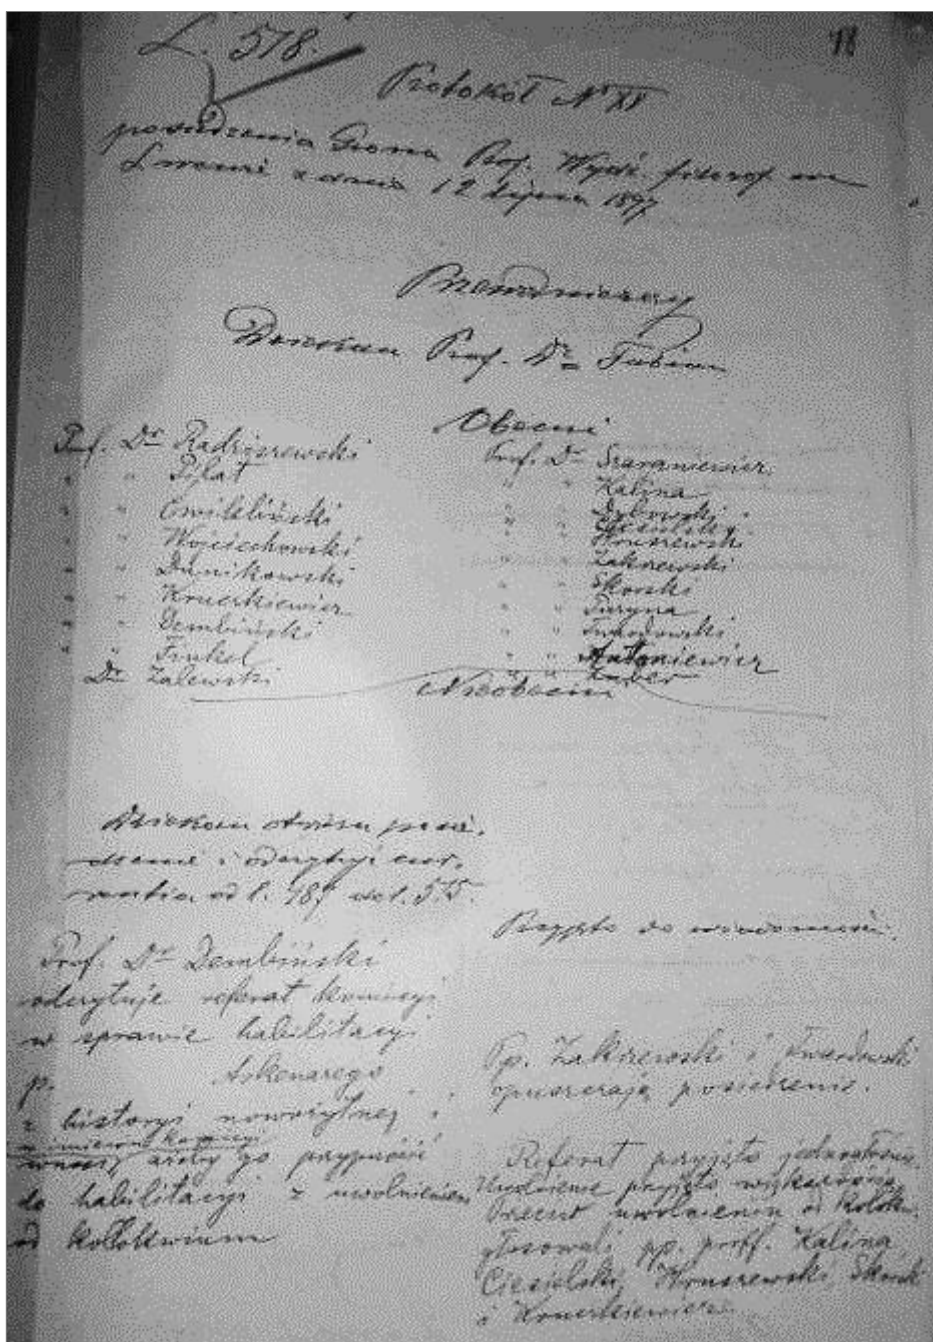 L. 578.
18
Protokół Nr XI
posiedzenia Grona Prof. Wydz. filozof. we
Lwowie z dnia 12 lipca 1897
Przewodniczący
Dziekan Prof. Dr Fabian
Obecni
Prof. Dr Radziszewski
" " Piłat
" " Ćwikliński
" " Wojciechowski
" " Dunikowski
" " Kruczkiewicz
" " Dembiński
" " Finkel
Dr Zalewski
Prof. Dr Szaraniewicz
" Kalina
" " Dybowski
" " Ciesielski
Hruszewski
" " Zakrzewski
" " Skórski
" " Puzyna
" " Twardowski
" " Antoniewicz
Zuber
Nieobecni
Dziekan otwiera posie-
dzenie i odczytuje
od l. 487 do l. 575.
Przyjęto do wiadomości.
Prof. Dr Dembiński
odczytuje referat komisyi
w sprawie habilitacyi
p. Askenazego
z historyi nowożytnej i
w imieniu komisyi
wnosi ażeby go przypuścić
do habilitacyi z uwolnieniem
od kollokwium
Pp. Zakrzewski i Twardowski
opuszczają posiedzenie.
Referat przyjęto jednogłośnie.
przyjęto większością
Przeciw uwolnieniu od kolokw.
głosowali pp. proff. Kalina,
Ciesielski, Hruszewski, Skórski
i Kruczkiewicz.